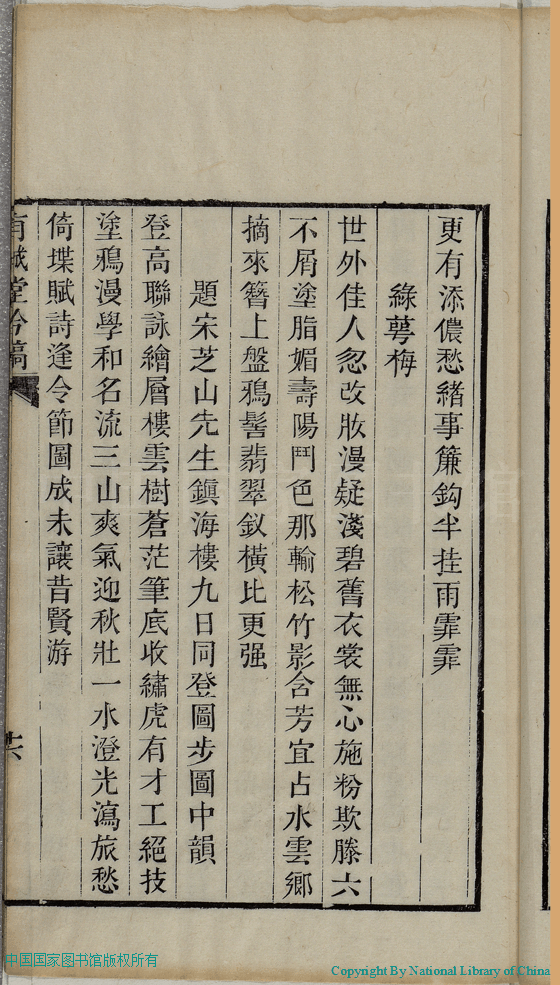 更有添儂愁緒事簾鈎半挂雨霏霏
綠萼梅
世外佳人忽改妝漫疑淺碧舊衣裳無心施粉欺滕六
不屑塗脂媚壽陽鬥色那輸松竹影含芳宜占水雲鄉
摘來簪上盤鴉髻翡翠釵橫比更强
題宋芝山先生鎮海樓九日同登圖步圖中韻
登高聯詠繪層樓雲樹蒼茫筆底收繡虎有才工絕技
塗鴉漫學和名流三山爽氣迎秋壯一水澄光瀉旅愁
倚堞賦詩逢令節圖成未讓昔賢游
有誠堂吟稿
中国国家图书馆版权所有
Copyright By National Library of China